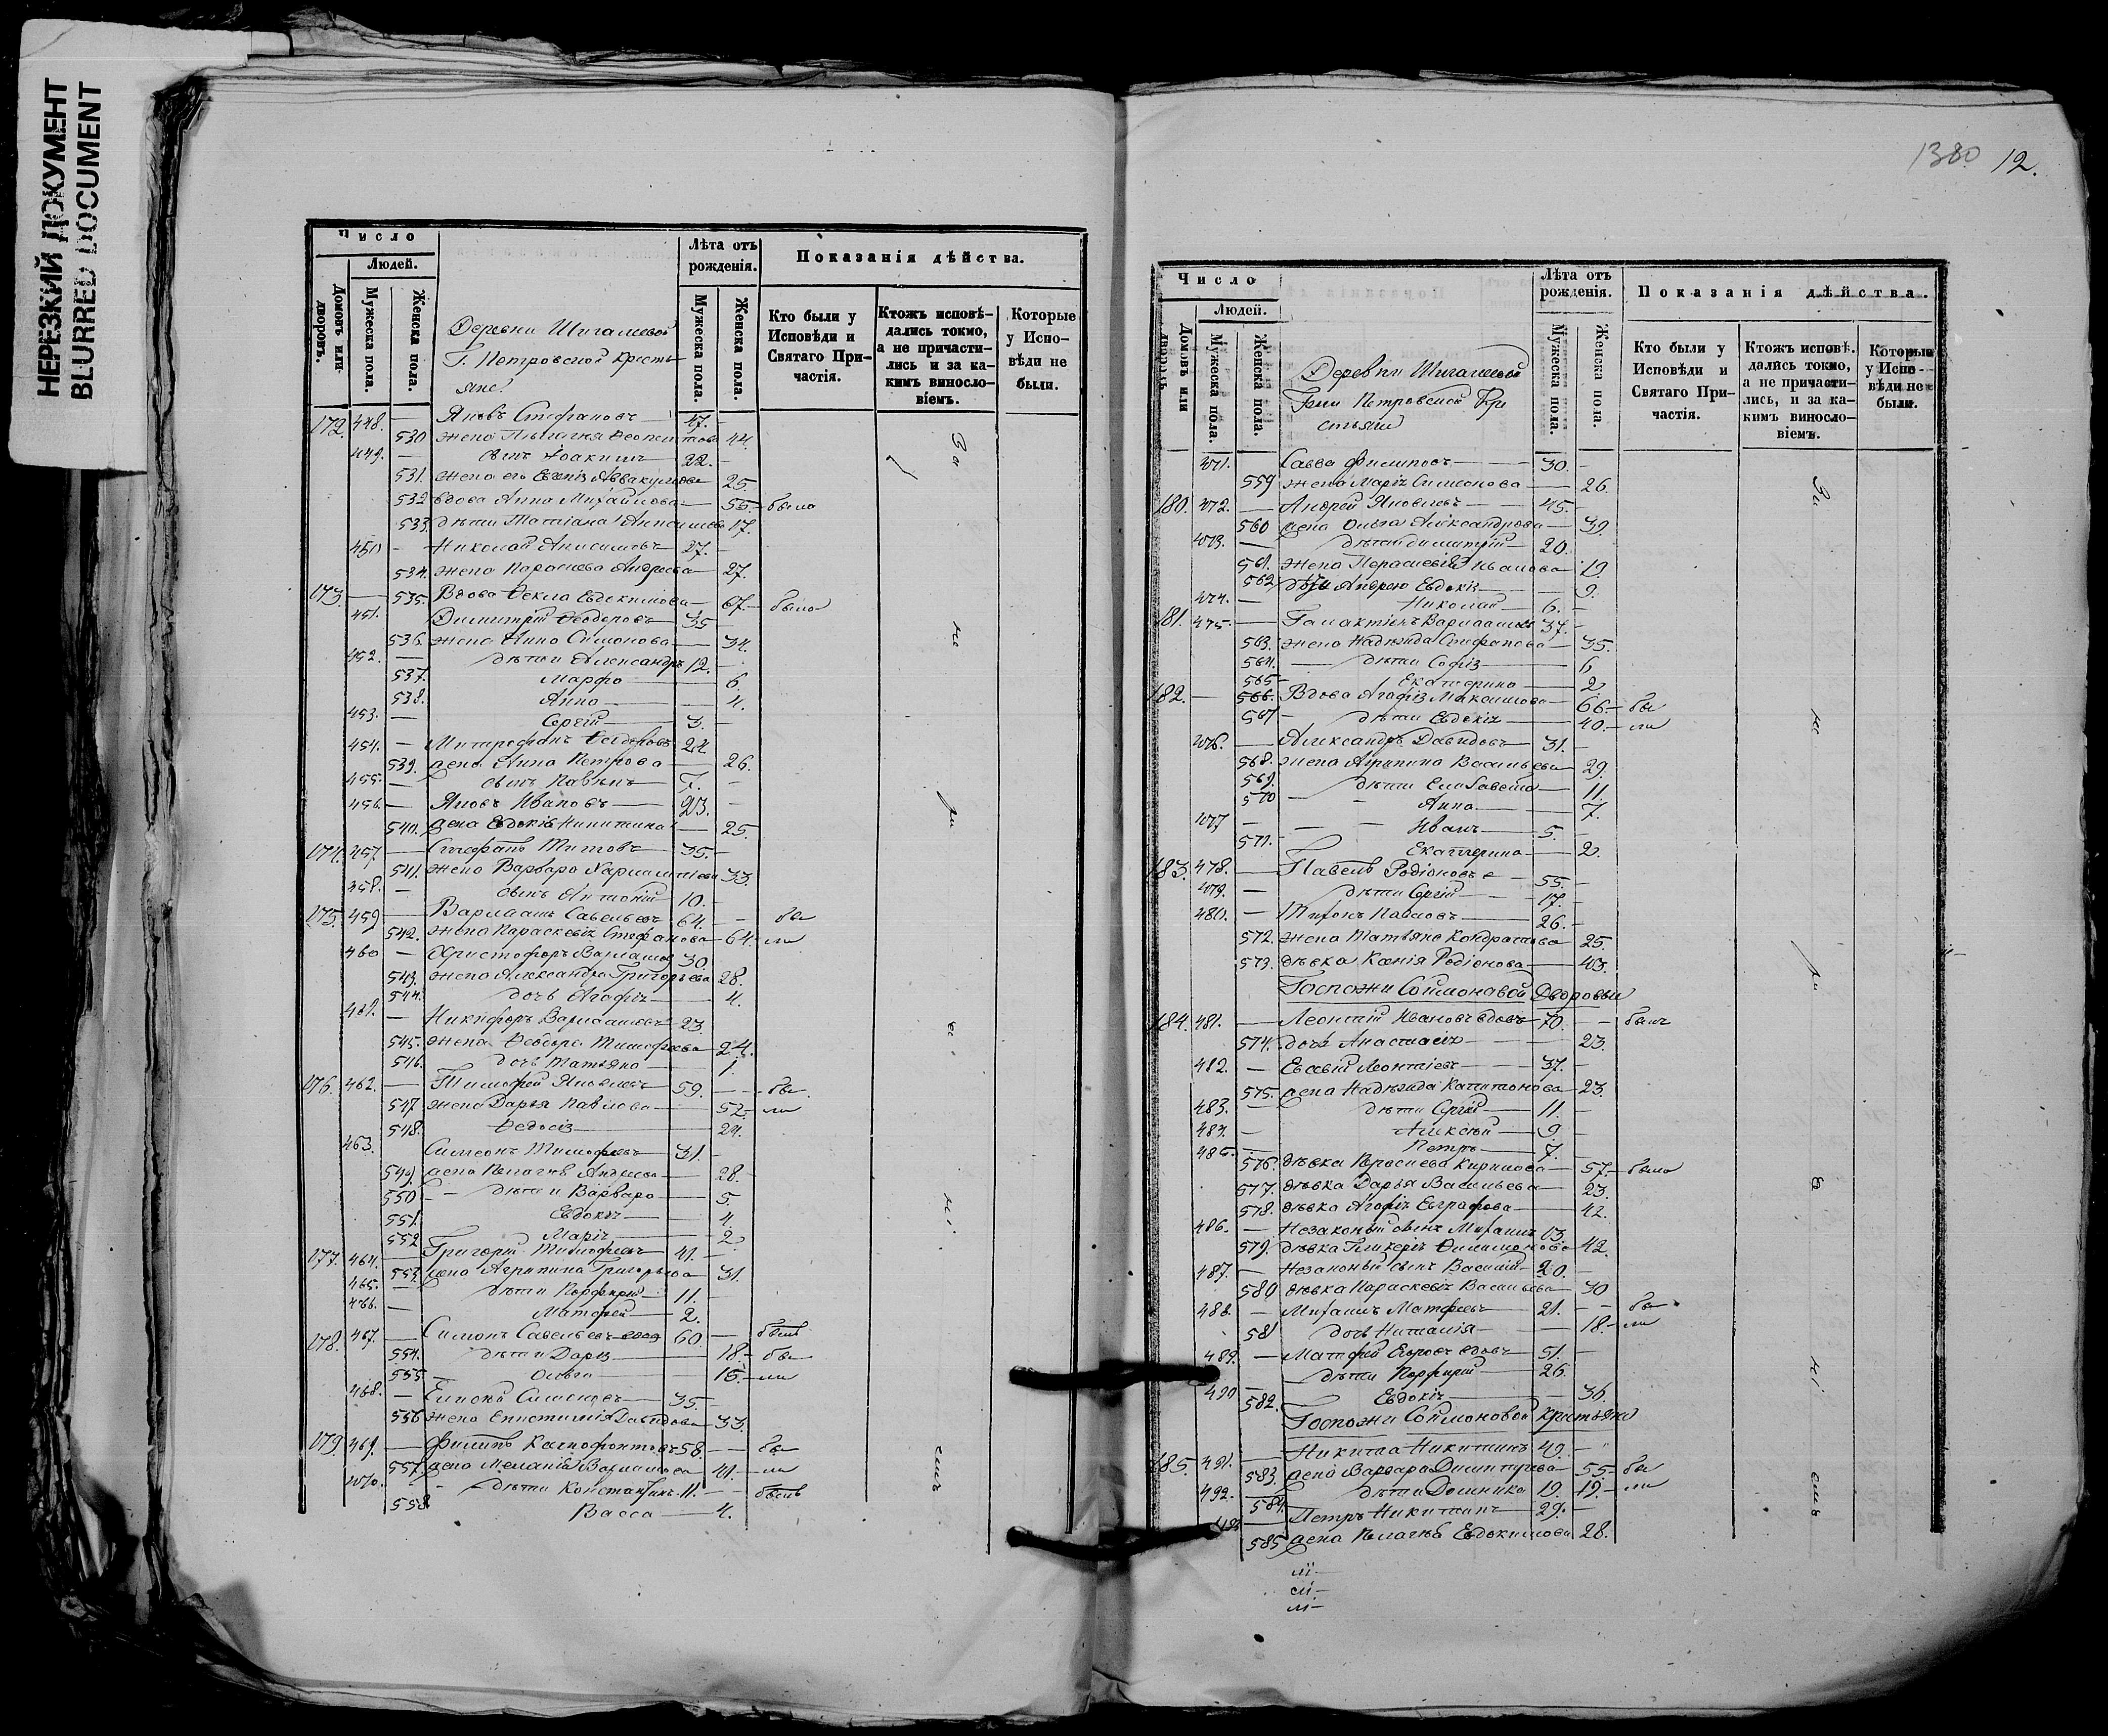 НЕРЕЗКИЙ ДОКУМЕНТ
BLURRED DOCUMENT
Число
Людей.
Домовъ или дворовъ.
Мужеска пола.
Женска пола.
Деревни Шигалевой
Г. Петровской кресть-
яне
Лѣта отъ рожденія.
Мужеска пола.
Женска пола.
Показанія дѣйства.
Кто были у Исповѣди и Святаго При-частія.
Ктожъ исповѣ-дались токмо, а не причасти-лись и за ка-кимъ виносло-віемъ.
Которые у Испо-вѣди не были.
172. 448. — Яковъ Стефановъ — 47. —
530 жена Пелагия 44.
449. — сынъ Іоакимъ — 22. —
531. жена его Евгенія Аввакумова 25
532 вдова Анна Михайлова — 56 — была
533. дѣти Татіана Анисимова 17.
450 — Николай Анисимовъ — 27. —
534. жена Парасковья Андреева — 27.
173. — 535. Вдова Ѳекла Евдокимова — 67. — была
451. Димитрій Ѳеодоровъ — 35
536. жена Анна Симонова — 34.
452. — дѣти Александръ 12. —
537. Марфа — 6.
538. Анна — 4.
453. — Сергій — 3. —
454. — Митрофанъ Ѳеодоровъ 24
539. жена Анна Петрова — 26.
455. — сынъ Павелъ — 7. —
456. — Яковъ Ивановъ — 23. —
540. жена Евдокія Никитина — 25.
174. 457. — Стефанъ Титовъ — 35. —
541. жена Варвара Харлампіева 33.
458. — сынъ Антоній 10. —
175. 459 — Варлаамъ Савельевъ 64. — бы
542. жена Параскевія Стефанова — 64. — ли
460 — Христофоръ Варлаамовъ 30.
543. жена Александра Григорьева 28.
544. дочь Агафія — 4.
461. — Никифоръ Варлаамовъ 23.
545. жена Ѳеодора Тимофеева 24.
546. дочь Татьяна — 1.
176. 462. — Тимофей Яковлевъ 59. — бы
547 жена Дарья Павлова — 52. — ли
548. Ѳедосія — 24.
463. Симеонъ Тимофеевъ — 31. —
549. жена Пелагия Андреева — 28.
550 — дѣти Варвара — 5.
551. Евдокія — 4.
552 Марія — 2
177. 464. — Григорій Тимофеевъ — 41. —
553. жена Агрипина Григорьева 31.
465. — дѣти Порфирій — 11. —
466. — Матфей — 2.
178. 467. — Симонъ Савельевъ вдов 60. — былъ
554. дѣти Дарья — 18. — бы
555 — Ольга — 15. — ли
468. — Симоновъ — 35. —
556 жена Епистимія Давидова 33.
179. 469. — Филипъ Ксенофонтовъ 58. — бы
557 жена Меланія Варламова 41. — ли
470. — дѣти Константинъ 11. — былъ
558. Васса — 4.
За
не
ри
ніе
емъ
1380 12.
Число
Людей.
Домовъ или дворовъ
Мужеска пола.
Женска пола.
Деревни Шигалевой
Гжи Петровской Кре
стьяне
Лѣта отъ рожденія.
Мужеска пола.
Женска пола.
Показанія дѣйства.
Кто были у Исповѣди и Святаго При-частія.
Ктожъ исповѣ-дались токмо, а не причасти-лись, и за ка-кимъ виносло-віемъ.
Которые у Испо-вѣди не были.
471. Савва Филиповъ — 30. —
559 жена Марія Симонова — 26.
180. 472. — Андрей Яковлевъ — 45. —
560 жена Ольга Александрова — 39.
473. — дѣти Димитрій — 20.
561. жена Параскевія Иванова 19.
562 дѣти Андрея Евдокія — 9.
474. — Николай — 6. —
181. 475. — Галактіонъ Варлаамовъ 37. —
563. жена Надежда Стефанова — 35.
564. — дѣти Софія — 6
565 — Екатерина — 2
182. — 566. Вдова Агафія Максимова — 66. — бы
567 — дѣти Евдокія — 40. — ли
476. — Александръ Давидовъ — 31. —
568. жена Агрипина Васильева 29.
569. дѣти Елисавета — 11.
570 — Анна — 7.
477 — Иванъ — 5. —
571. Екатерина — 2.
183. 478. — Павелъ Родіоновъ — 55. —
479. — дѣти Сергій — 17. —
480. — Тихонъ Павловъ — 26. —
572. жена Татьяна Кондратова — 25.
573. дѣвка Ксенія Родіонова — 43.
Госпожи Соймоновой Дворовые
184. 481. — Леонтій Ивановъ вдовъ 70. — былъ
574. дочь Анастасія — 23.
482. — Евсевій Леонтіевъ — 37. —
575. жена Надежда Капитонова — 23.
483. — дѣти Сергій — 11. —
484. — Алексѣй — 9. —
485. — Петръ — 7. —
576. дѣвка Парасковья Кирилова — 57. — была
577. дѣвка Дарья Васильева — 23.
578. дѣвка Агафія Евграфова — 42.
486. — Незаконый сынъ Михаилъ 13.
579. дѣвка Гликерія Филимонова 42.
487. — Незаконый сынъ Василій — 20. —
580 дѣвка Параскевія Васильева — 30
488. — Михаилъ Матфеевъ — 21. — бы
581 дочь Наталія — 18. — ли
489. — Матфей вдовъ — 51. —
дѣти Порфирій — 26.
490 — 582. Евдокія — 36.
Госпожи Соймоновой крестьяне
185. 491. — Никита Никитинъ 49. —
583. жена Варвара Димитріева — 55. — бы
492. — 584. дѣти Домника 19. 19. — ли
493 — Петръ Никитинъ — 29. —
585 жена Пелагия Евдокимова 28.
За
не
ри
ніе
емъ